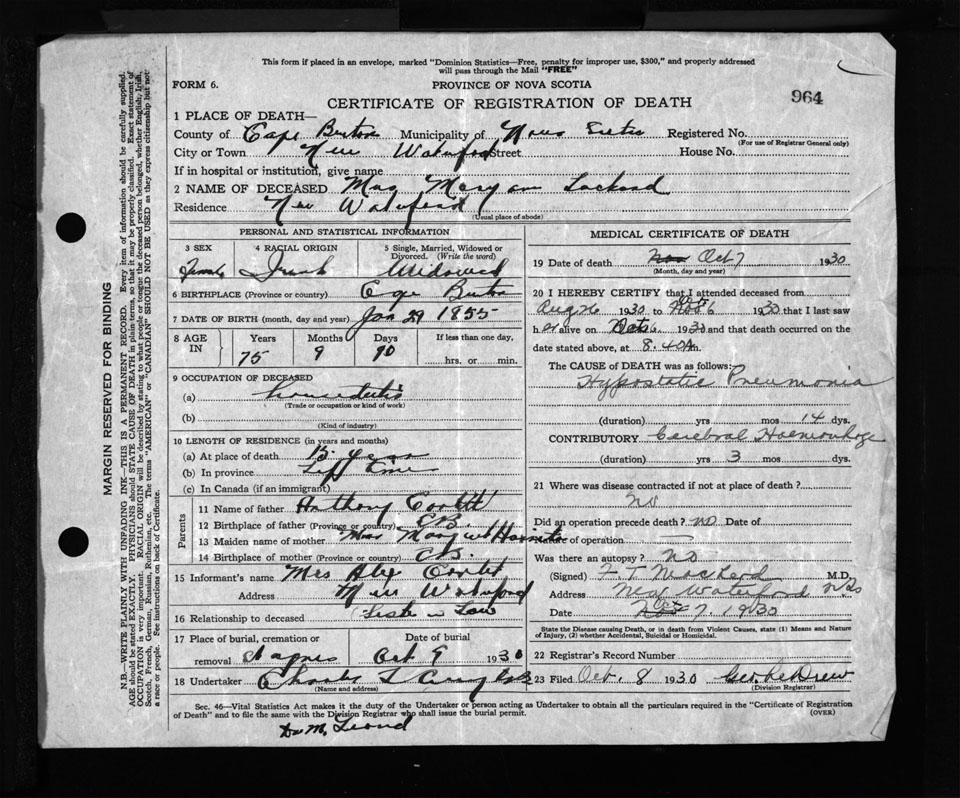 This form if placed in an envelope, marked "Dominion Statistics—Free, penalty for improper use, $300," and properly addressed
will pass through the Mail "FREE"
FORM 6.
PROVINCE OF NOVA SCOTIA
CERTIFICATE OF REGISTRATION OF DEATH
964
1 PLACE OF DEATH—
County of Cape Breton Municipality of Registered No.
(For use of Registrar General only)
City or Town New Waterford Street House No.
If in hospital or institution, give name
2 NAME OF DECEASED Mary ann
Residence New Waterford
(Usual place of abode)
PERSONAL AND STATISTICAL INFORMATION
3 SEX 4 RACIAL ORIGIN 5 Single, Married, Widowed or
Divorced. (Write the word)
Female Widowed
6 BIRTHPLACE (Province or country) Cape Breton
7 DATE OF BIRTH (month, day and year) Jan 29 1855
8 AGE IN Years Months Days If less than one day,
75 9 hrs. or min.
9 OCCUPATION OF DECEASED
(a) house duties
(Trade or occupation or kind of work)
(b)
(Kind of industry)
10 LENGTH OF RESIDENCE (in years and months)
(a) At place of death 15 years
(b) In province Life time
(c) In Canada (if an immigrant)
Parents
11 Name of father Anthony
12 Birthplace of father (Province or country) C.B.
13 Maiden name of mother Miss Margret
14 Birthplace of mother (Province or country) C.B.
15 Informant's name Mrs Alex
Address New Waterford
16 Relationship to deceased Sister in Law
17 Place of burial, cremation or Date of burial
removal St Agnes Oct 9 1930
18 Undertaker Charles
(Name and address)
MEDICAL CERTIFICATE OF DEATH
19 Date of death Oct 7 1930
(Month, day and year)
20 I HEREBY CERTIFY that I attended deceased from
Aug 26 1930 to Oct 6 1930 that I last saw
her alive on Oct 6 1930 and that death occurred on the
date stated above, at 8.40 m.
The CAUSE of DEATH was as follows:
Hypostatic Pneumonia
(duration) yrs mos 14 dys.
CONTRIBUTORY Cerebral Haemorrhage
(duration) yrs 3 mos dys.
21 Where was disease contracted if not at place of death?
No
Did an operation precede death? no Date of
Nature of operation —
Was there an autopsy? no
(Signed) M.D.
Address New Waterford N.S.
Date Oct 7. 1930
State the Disease causing Death, or in death from Violent Causes, state (1) Means and
Nature of Injury, (2) whether Accidental, Suicidal or Homicidal.
22 Registrar's Record Number
23 Filed Oct. 8 1930 Geo
(Division Registrar)
Sec. 46—Vital Statistics Act makes it the duty of the Undertaker or person acting as Undertaker to obtain all the particulars required in the "Certificate of Registration
of Death" and to file the same with the Division Registrar who shall issue the burial permit.
(OVER)
MARGIN RESERVED FOR BINDING
N.B.—WRITE PLAINLY WITH UNFADING INK—THIS IS A PERMANENT RECORD. Every item of information should be carefully supplied.
AGE should be stated EXACTLY. PHYSICIANS should STATE CAUSE OF DEATH in plain terms, so that it may be properly classified. Exact statement of
OCCUPATION is very important. RACIAL ORIGIN will be described by stating to what people or tongue the deceased person belonged, whether English, Irish,
Scotch, French, German, Russian, Ruthenian, etc. The terms "AMERICAN" or "CANADIAN" SHOULD NOT BE USED as they express citizenship but not
a race or people. See instructions on back of Certificate.